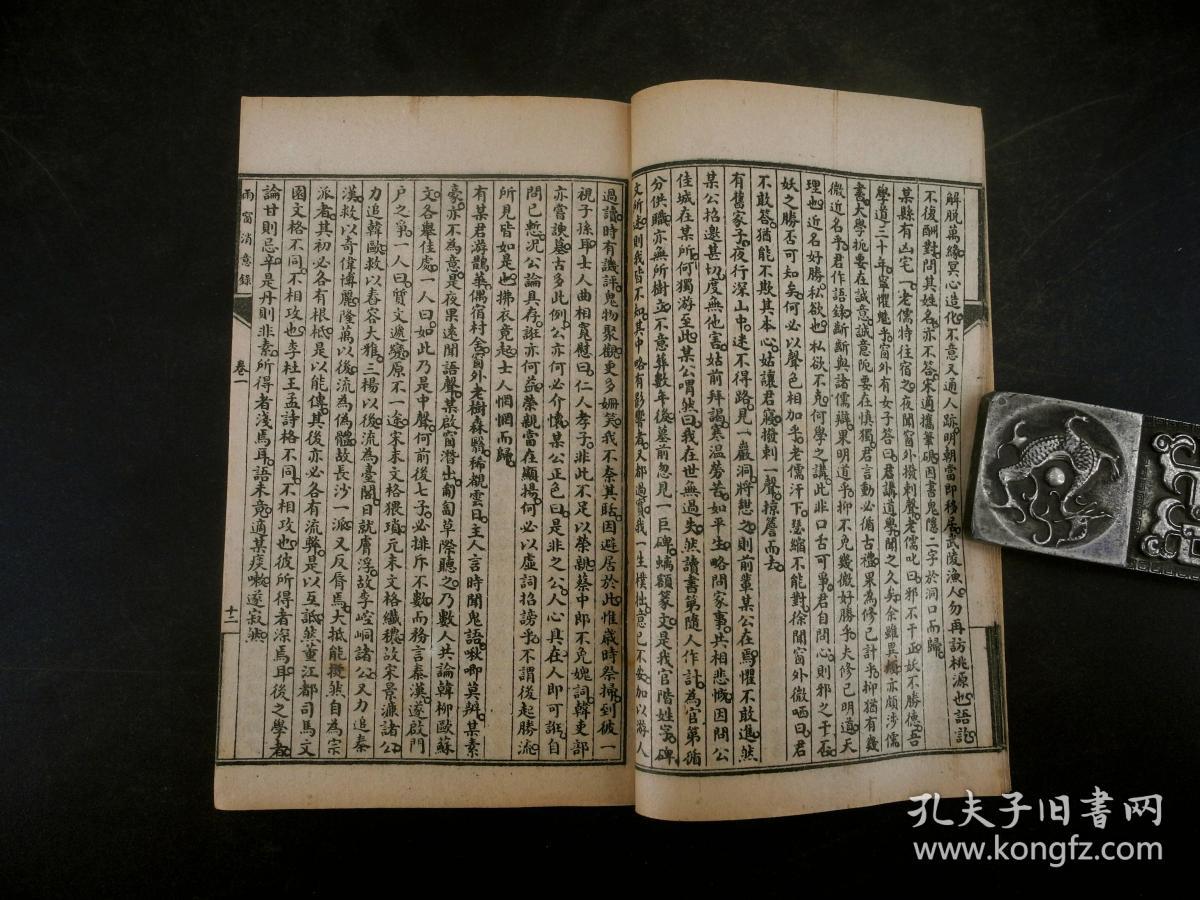 解脫萬緣冥心造化不意又通人跡明朝當即移居武陵漁人勿再訪桃源也語訖
不復酬對問其姓名亦不答宋適攜筆硯因書鬼隱二字於洞口而歸
某縣有凶宅一老儒特往宿之夜聞窗外撥剌聲老儒叱曰邪不干正妖不勝德吾
學道三十年寧懼魅乎窗外有女子答曰君講道學聞之久矣余雖異類亦頗涉儒
書大學扼要在誠意誠意阨要在慎獨君言動必循古禮果為修己計乎抑猶有幾
微近名乎君作語錄斷斷與諸儒辯果明道乎抑不免幾微好勝乎夫修己明道天
理也近名好勝私欲也私欲不克何學之講此非口舌可爭君自問心則邪之干正
妖之勝否可知矣何必以聲色相加乎老儒汗下瑟縮不能對徐聞窗外微哂曰君
不敢答猶能不欺其本心姑讓君寢撥剌一聲掠簷而去
有舊家子夜行深山中迷不得路見一巖洞將憩之則前輩某公在焉懼不敢進然
某公招邀甚切度無他害姑前拜謁寒温勞苦如平生略問家事共相悲慨因問公
佳城在某所何獨游至此某公喟然曰我在世無過失然讀書第隨人作計為官第循
分供職亦無所樹立不意葬數年後墓前忽見一巨碑螭額篆文是我官階姓字碑
文所述則我皆不知其中略有影響者又都過實我一生樸拙意已不安加以游人
過讀時有譏評鬼物聚觀更多姍笑我不奈其聒因避居於此惟歲時祭掃到彼一
視子孫耳士人曲相寬慰曰仁人孝子非此不足以榮親蔡中郎不免愧詞韓吏部
亦嘗諛墓古多此例公亦何必介懷某公正色曰是非之公人心具在人即可誑自
問已慙況公論具存誑亦何益榮親當在顯揚何必以虛詞招謗乎不謂後起勝流
所見皆如是也拂衣竟起士人惘惘而歸
有某君游鵲華偶宿村舍窗外老樹森翳稀覩雲日主人言時聞鬼語啾唧莫辨某素
豪亦不為意是夜果遠聞語聲某啟窗潛出匍匐草際聽之乃數人共論韓柳歐蘇
文各舉佳處一人曰如此乃是中聲何前後七子必排斥不數而務言秦漢遂啟門
户之爭一人曰質文遞變原不一途宋末文格猥瑣元末文格纖穠故宋景濂諸公
力追韓歐救以舂容大雅三楊以後流為臺閣日就膚浮故李崆峒諸公又力追秦
漢救以奇偉博麗隆萬以後流為偽體故長沙一派又反脣焉大抵能挺然自為宗
派者其初必各有根柢是以能傳其後亦必各有流弊是以互詆然董江都司馬文
園文格不同不相攻也李杜王孟詩格不同不相攻也彼所得者深焉耳後之學者
論甘則忌辛是丹則非素所得者淺焉耳語未竟適某痰嗽遂寂然
雨窗消意錄
卷一
十二
孔夫子旧書网
www.kongfz.com